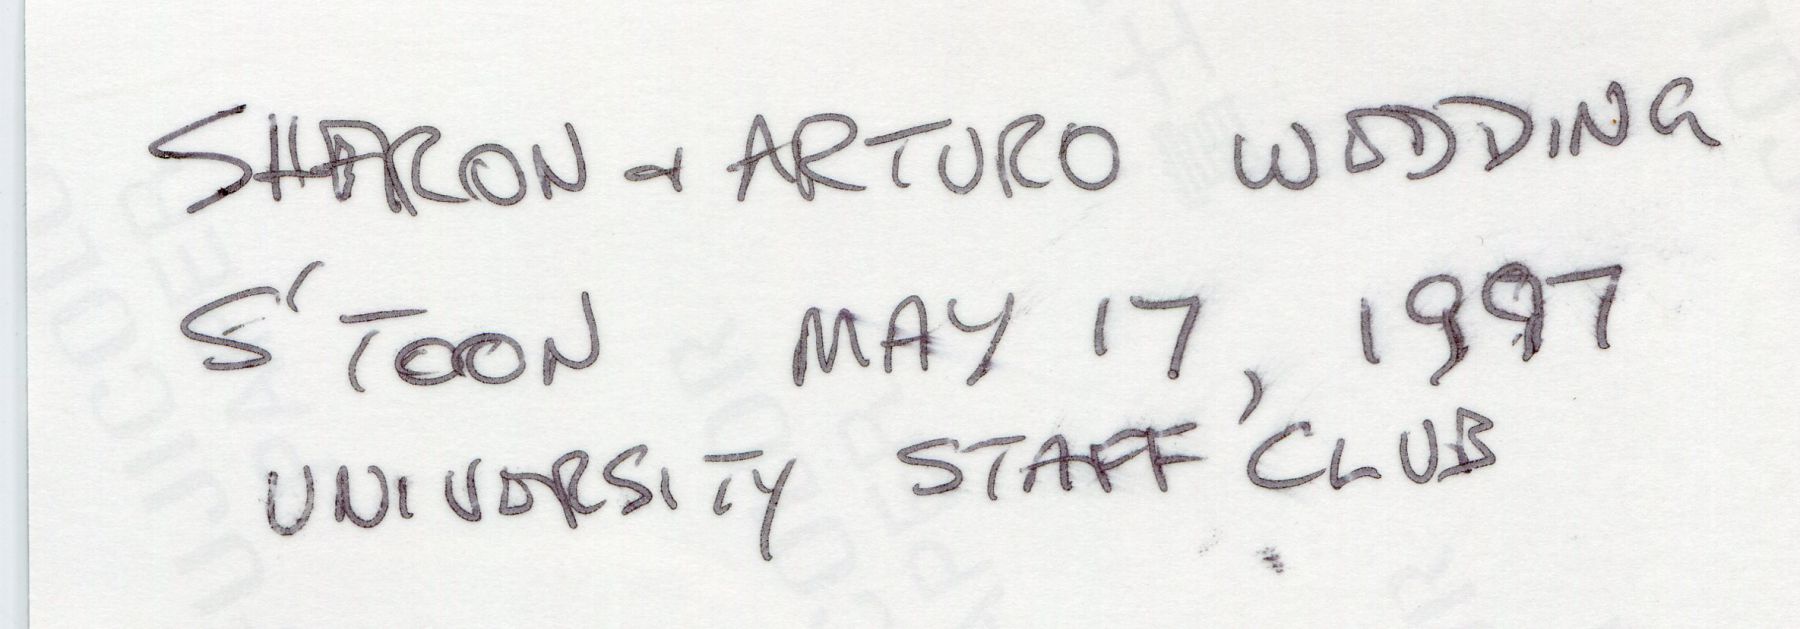 SHARON & ARTURO WEDDING
S'TOON MAY 17, 1997
UNIVERSITY STAFF CLUB